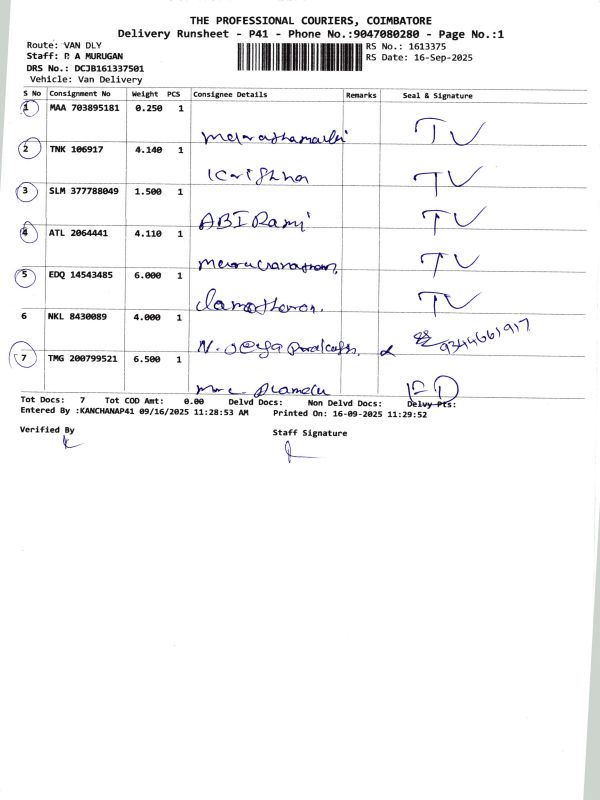 THE PROFESSIONAL COURIERS, COIMBATORE
Delivery Runsheet - P41 - Phone No.:9047080280 - Page No.:1
Route: VAN DLY
RS No.: 1613375
Staff: P. A MURUGAN
RS Date: 16-Sep-2025
DRS No.: DCJB161337501
Vehicle: Van Delivery
S No Consignment No Weight PCS Consignee Details Remarks Seal & Signature
1 MAA 703895181 0.250 1 TV
2 TNK 106917 4.140 1 Krishna TV
3 SLM 377788049 1.500 1 ABIRami TV
4 ATL 2064441 4.110 1 TV
5 EDQ 14543485 6.000 1 TV
6 NKL 8430089 4.000 1 9344661917
7 TMG 200799521 6.500 1
Tot Docs: 7 Tot COD Amt: 0.00 Delvd Docs: Non Delvd Docs: Delvy Pts:
Entered By :KANCHANAP41 09/16/2025 11:28:53 AM Printed On: 16-09-2025 11:29:52
Verified By
Staff Signature